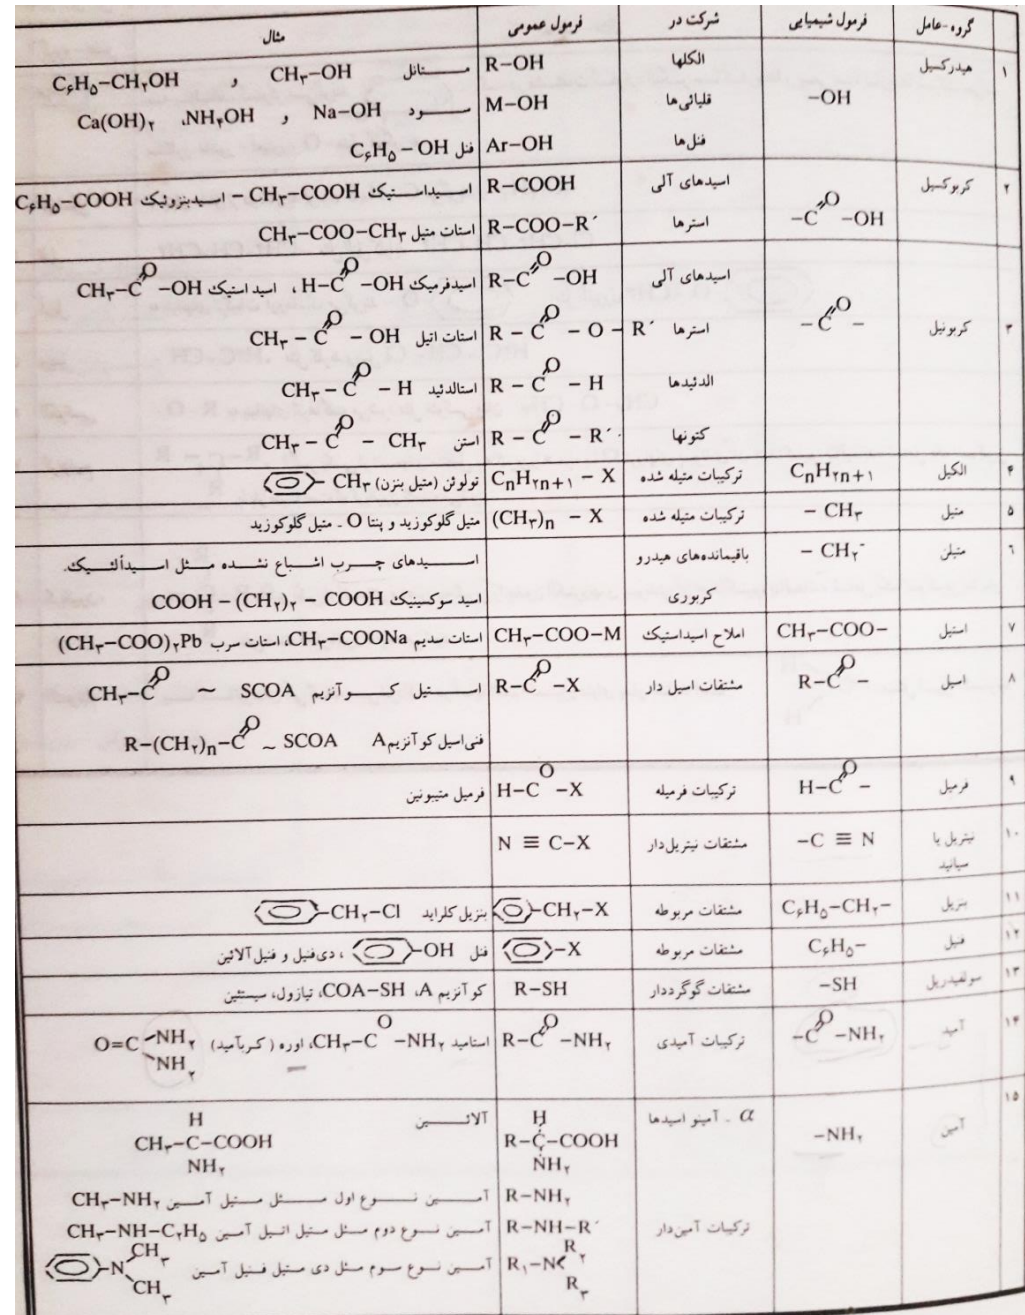 گروه-عامل	فرمول شیمیایی	شرکت در	فرمول عمومی	مثال
۱	هیدرکسیل	-OH	الکلها	R-OH	متانل CH۳-OH و C۶H۵-CH۲OH
قلیائی‌ها	M-OH	سود Na-OH و NH۴OH، Ca(OH)۲
فنل‌ها	Ar-OH	فنل C۶H۵-OH
۲	کربوکسیل	-C(=O)-OH	اسیدهای آلی	R-COOH	اسیداستیک CH۳-COOH - اسیدبنزوئیک C۶H۵-COOH
استرها	R-COO-R´	استات متیل CH۳-COO-CH۳
۳	کربونیل	-C(=O)-	اسیدهای آلی	R-C(=O)-OH	اسیدفرمیک H-C(=O)-OH، اسید استیک CH۳-C(=O)-OH
استرها	R-C(=O)-O-R´	استات اتیل CH۳-C(=O)-OH
الدئیدها	R-C(=O)-H	استالدئید CH۳-C(=O)-H
کتونها	R-C(=O)-R´	استن CH۳-C(=O)-CH۳
۴	الکیل	CnH۲n+۱	ترکیبات متیله شده	CnH۲n+۱-X	تولوئن (متیل بنزن) CH۳-
۵	متیل	-CH۳	ترکیبات متیله شده	(CH۳)n-X	متیل گلوکوزید و پنتا O - متیل گلوکوزید
۶	متیلن	-CH۲-	باقیمانده‌های هیدرو	اسیدهای چرب اشباع نشده مثل اسیدألئیک.
کربوری	اسید سوکسینیک COOH-(CH۲)۲-COOH
۷	استیل	CH۳-COO-	املاح اسیداستیک	CH۳-COO-M	استات سدیم CH۳-COONa، استات سرب (CH۳-COO)۲Pb
۸	اسیل	R-C(=O)-	مشتقات اسیل دار	R-C(=O)-X	استیل کوآنزیم CH۳-C(=O) ~ SCOA
فنی‌اسیل کوآنزیم A R-(CH۲)n-C(=O) ~ SCOA
۹	فرمیل	H-C(=O)-	ترکیبات فرمیله	H-C(O)-X	فرمیل متیونین
۱۰	نیتریل یا	-C≡N	مشتقات نیتریل‌دار	N≡C-X
سیانید
۱۱	بنزیل	C۶H۵-CH۲-	مشتقات مربوطه	-CH۲-X	بنزیل کلراید -CH۲-Cl
۱۲	فنیل	C۶H۵-	مشتقات مربوطه	-X	فنل -OH، دی‌فنیل و فنیل آلانین
۱۳	سولفیدریل	-SH	مشتقات گوگرددار	R-SH	کوآنزیم A، COA-SH، تیازول، سیستئین
۱۴	آمید	-C(=O)-NH۲	ترکیبات آمیدی	R-C(=O)-NH۲	استامید CH۳-C(O)-NH۲، اوره (کربآمید) O=C NH۲ NH۲
۱۵	آمین	-NH۲	α - آمینو اسیدها	R-C(H)(NH۲)-COOH	آلانین CH۳-C(H)(NH۲)-COOH
R-NH۲	آمین نوع اول مثل متیل آمین CH۳-NH۲
ترکیبات آمین‌دار	R-NH-R´	آمین نوع دوم مثل متیل اتیل آمین CH۳-NH-C۲H۵
R۱-N R۲ R۳	آمین نوع سوم مثل دی متیل فنیل آمین -N CH۳ CH۳